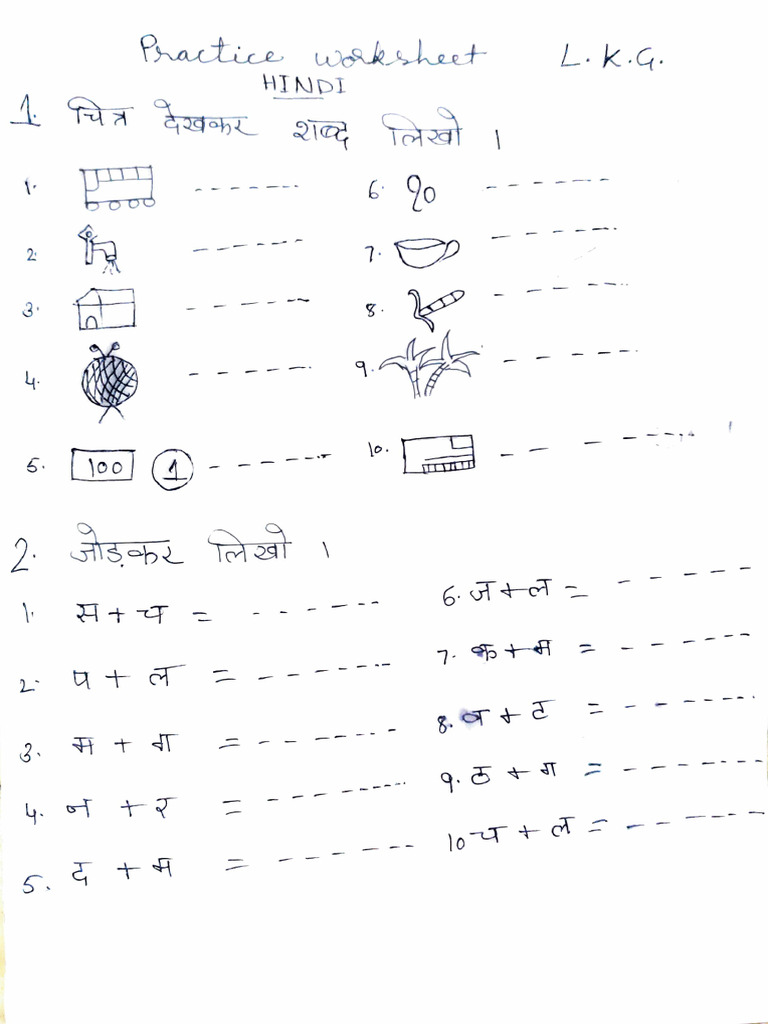 Practice worksheet L.K.G.
HINDI
1. चित्र देखकर शब्द लिखो ।
1. -------
6. १० ------
2. -------
7. -------
3. -------
8. -------
4. -------
9. -------
5. 100 1 -------
10. -------
2. जोड़कर लिखो ।
1. स + च = -------
6. ज + ल = ------
2. प + ल = -------
7. क + म = -------
3. म + ग = -------
8. + ट = -------
4. न + र = -------
9. ठ + ग = -------
5. द + म = -------
10 च + ल = -------